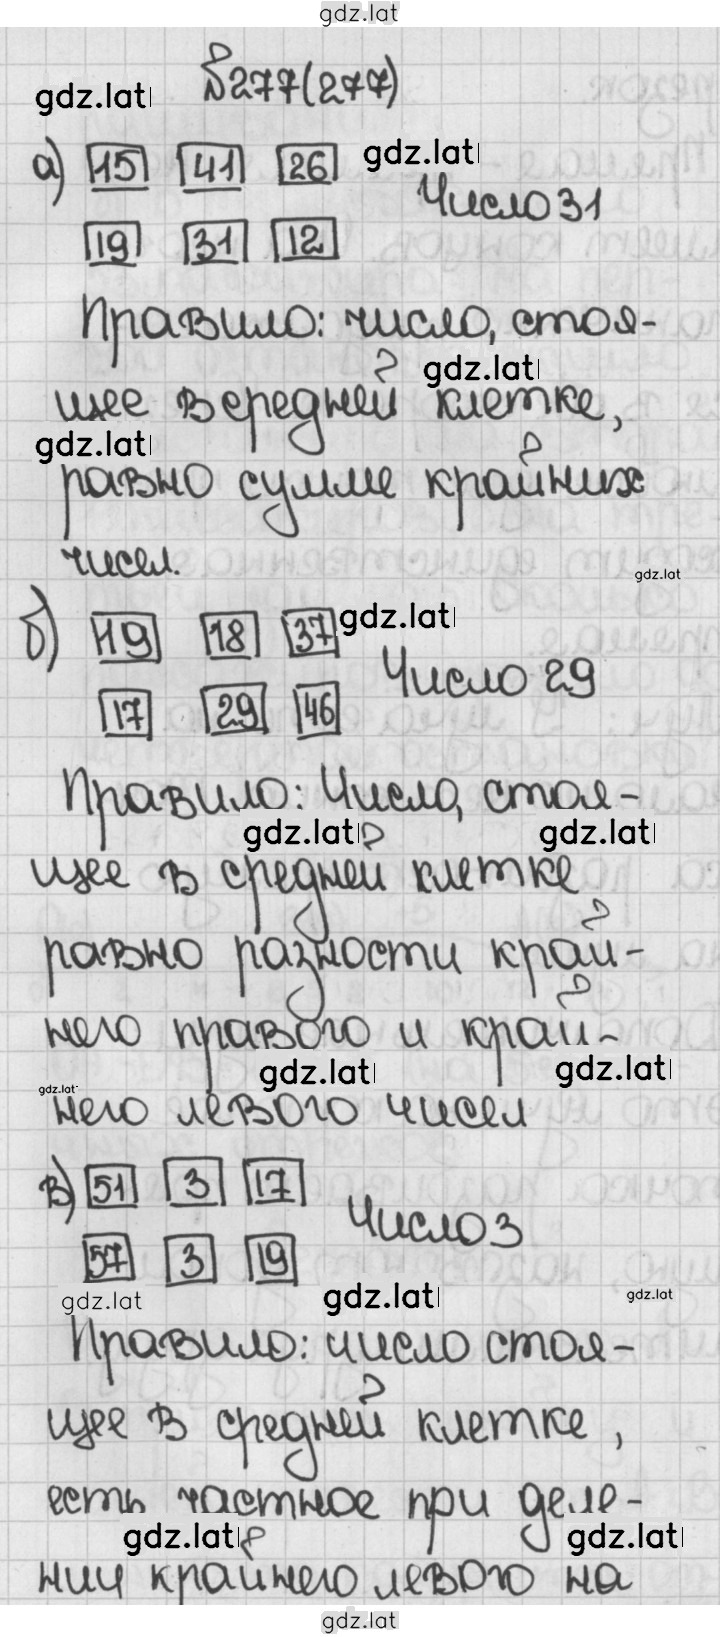 gdz.lat
№277(277)
gdz.lat
а) 15 41 26 gdz.lat
Число 31
19 31 12
Правило: число, стоя-
gdz.lat
щее в средней клетке,
gdz.lat
равно сумме крайних
чисел.
gdz.lat
б) 19 18 37 gdz.lat
Число 29
17 29 46
Правило: Число, стоя-
gdz.lat gdz.lat
щее в средней клетке
равно разности край-
него правого и край-
gdz.lat gdz.lat
gdz.lat
него левого чисел
в) 51 3 17
Число 3
57 3 19
gdz.lat gdz.lat gdz.lat
Правило: число стоя-
щее в средней клетке,
есть частное при деле-
gdz.lat gdz.lat
нии крайнего левого на
gdz.lat